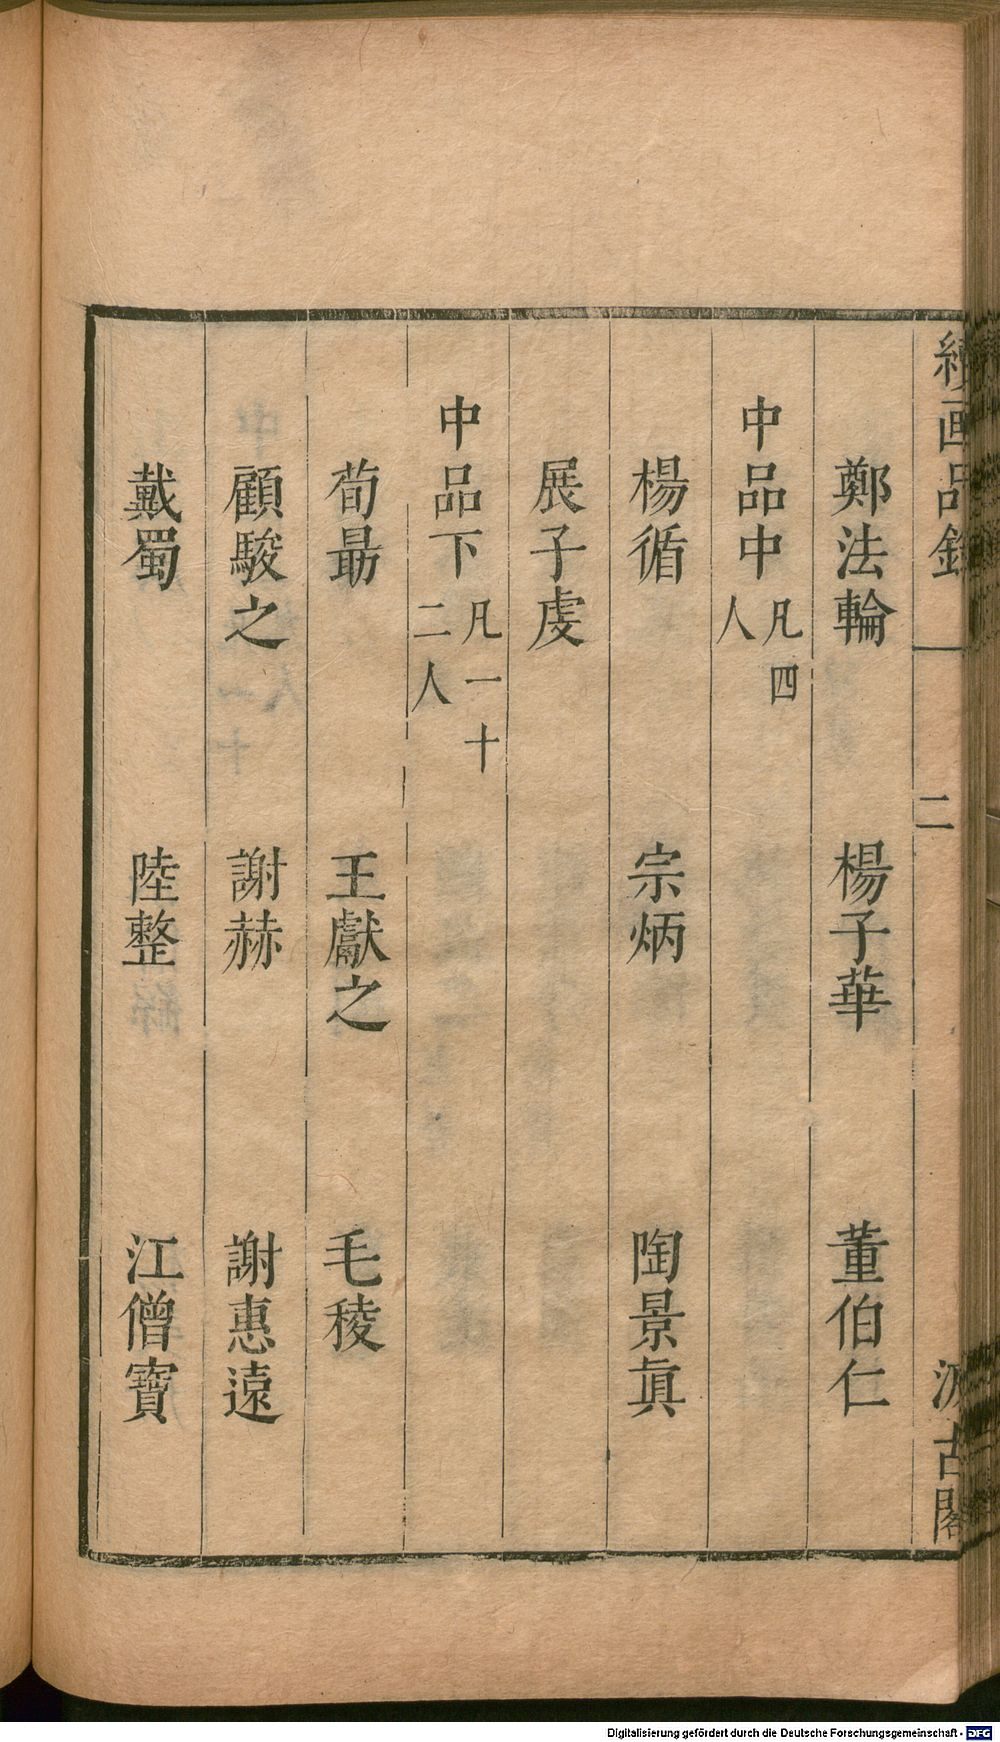 續画品錄 二 汲古閣
鄭法輪 楊子華 董伯仁
中品中 凡四人
楊循 宗炳 陶景眞
展子虔
中品下 凡一十二人
荀勗 王獻之 毛稜
顧駿之 謝赫 謝惠遠
戴蜀 陸整 江僧寶
Digitalisierung gefördert durch die Deutsche Forschungsgemeinschaft - DFG